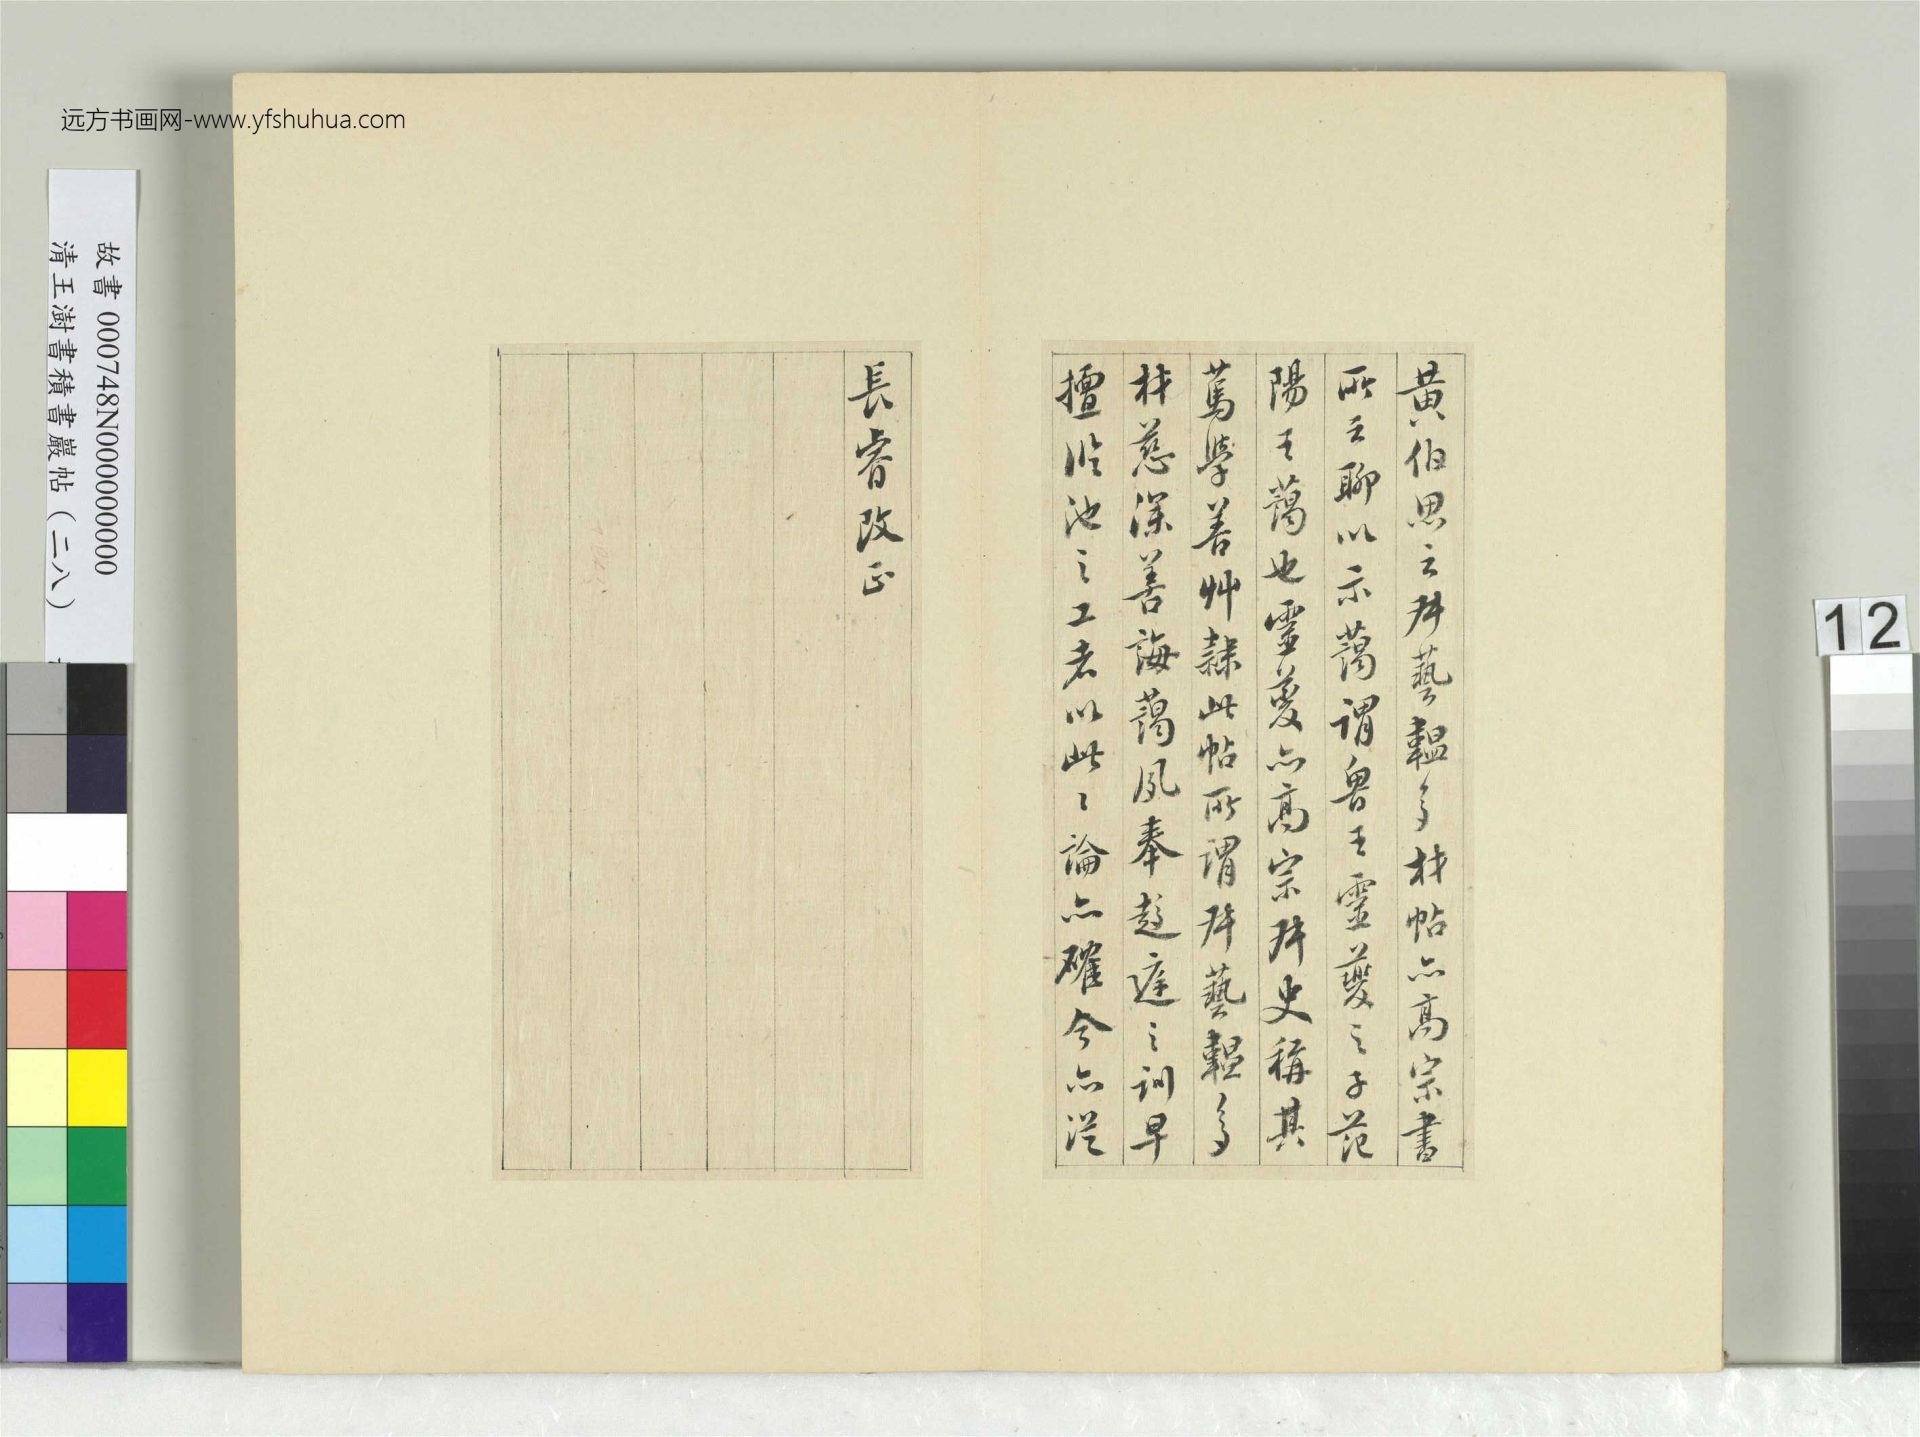 远方书画网-www.yfshuhua.com
故書 000748N000000000
清王澍書積書巖帖（二八）
12
黄伯思云叔藝韞多材帖亦高宗書
所云聊以示藹謂魯王靈夔之子范
陽王藹也靈夔亦高宗叔史稱其
篤學善艸隸此帖所謂叔藝韞多
材慈深善誨藹夙奉趨庭之訓早
擅臨池之工者以此〻論亦確今亦從
長睿改正